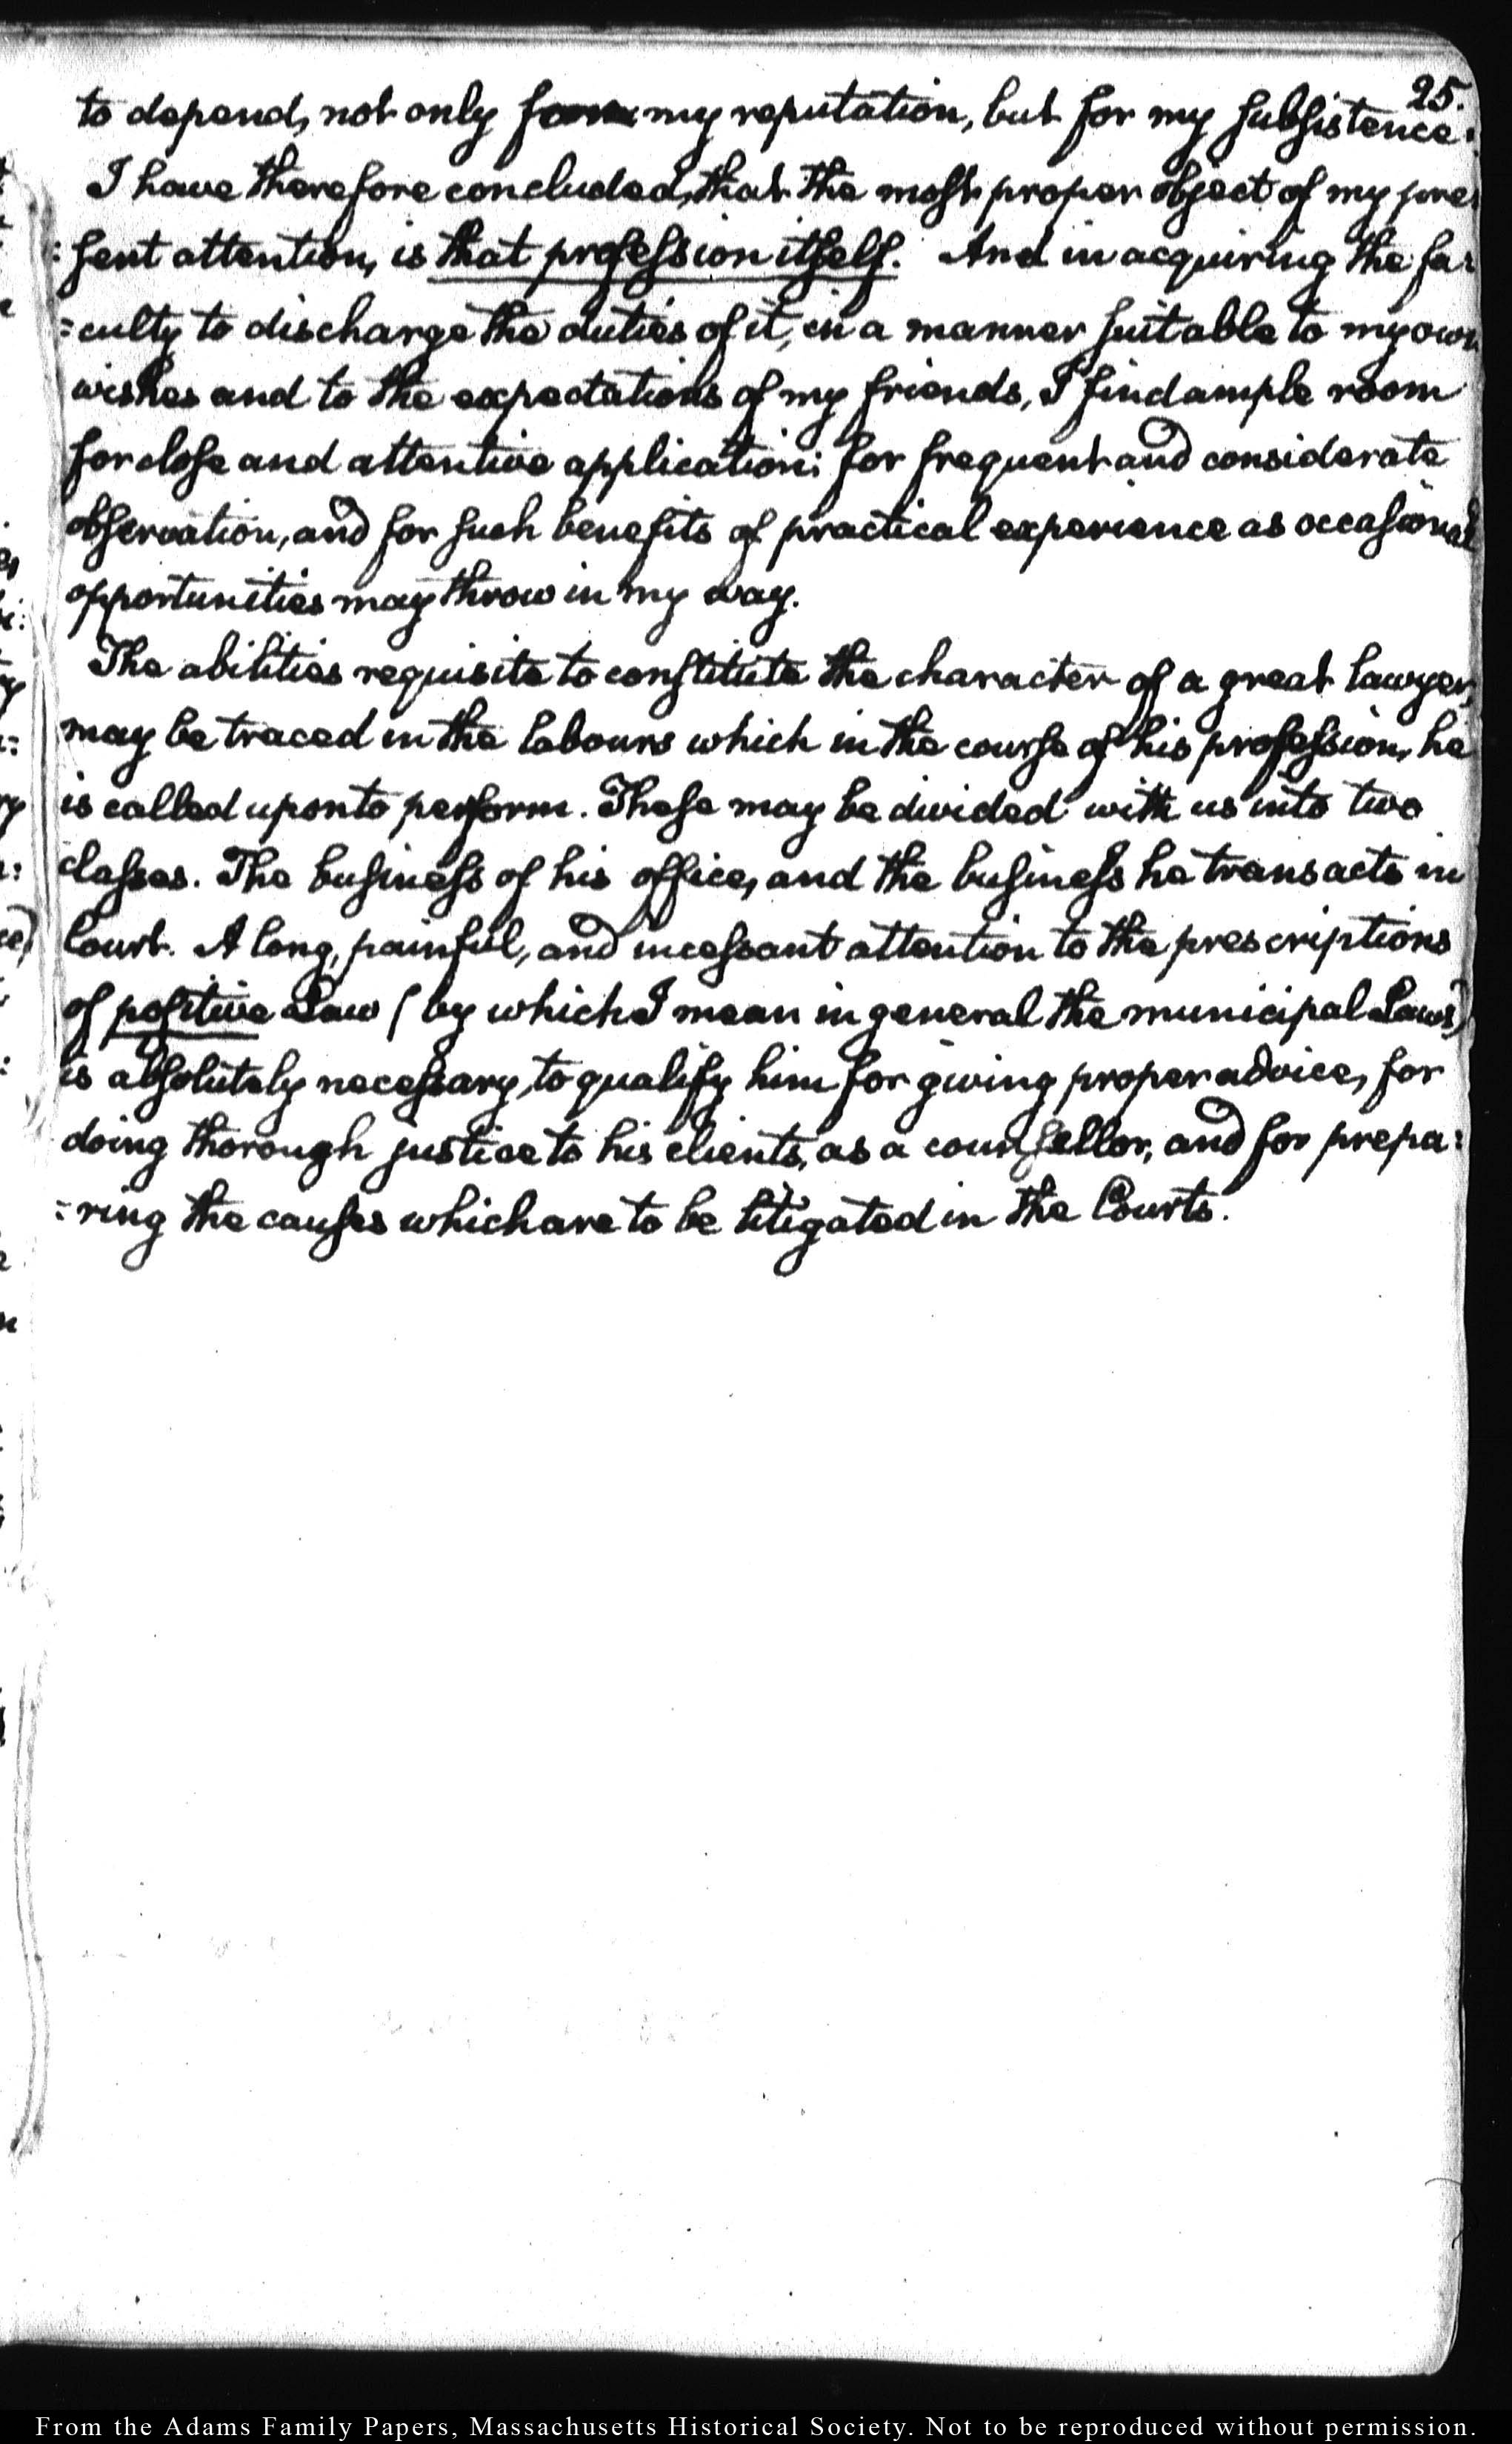 25.
to depend, not only for my reputation, but for my subsistence.
I have therefore concluded, that the most proper object of my pre
:sent attention, is that profession itself. And in acquiring the fa:
:culty to discharge the duties of it, in a manner suitable to my own
wishes and to the expectations of my friends, I find ample room
for close and attentive application: for frequent and considerate
observation, and for such benefits of practical experience as occasional
opportunities may throw in my way.
The abilities requisite to constitute the character of a great lawyer,
may be traced in the labours which in the course of his profession, he
is called upon to perform. These may be divided with us into two
classes. The business of his office, and the business he transacts in
Court. A long, painful, and incessant attention to the prescriptions
of positive Law (by which I mean in general the municipal Laws)
is absolutely necessary, to qualify him for giving proper advice, for
doing thorough justice to his clients, as a counsellor, and for prepa:
:ring the causes which are to be litigated in the Courts.
From the Adams Family Papers, Massachusetts Historical Society. Not to be reproduced without permission.